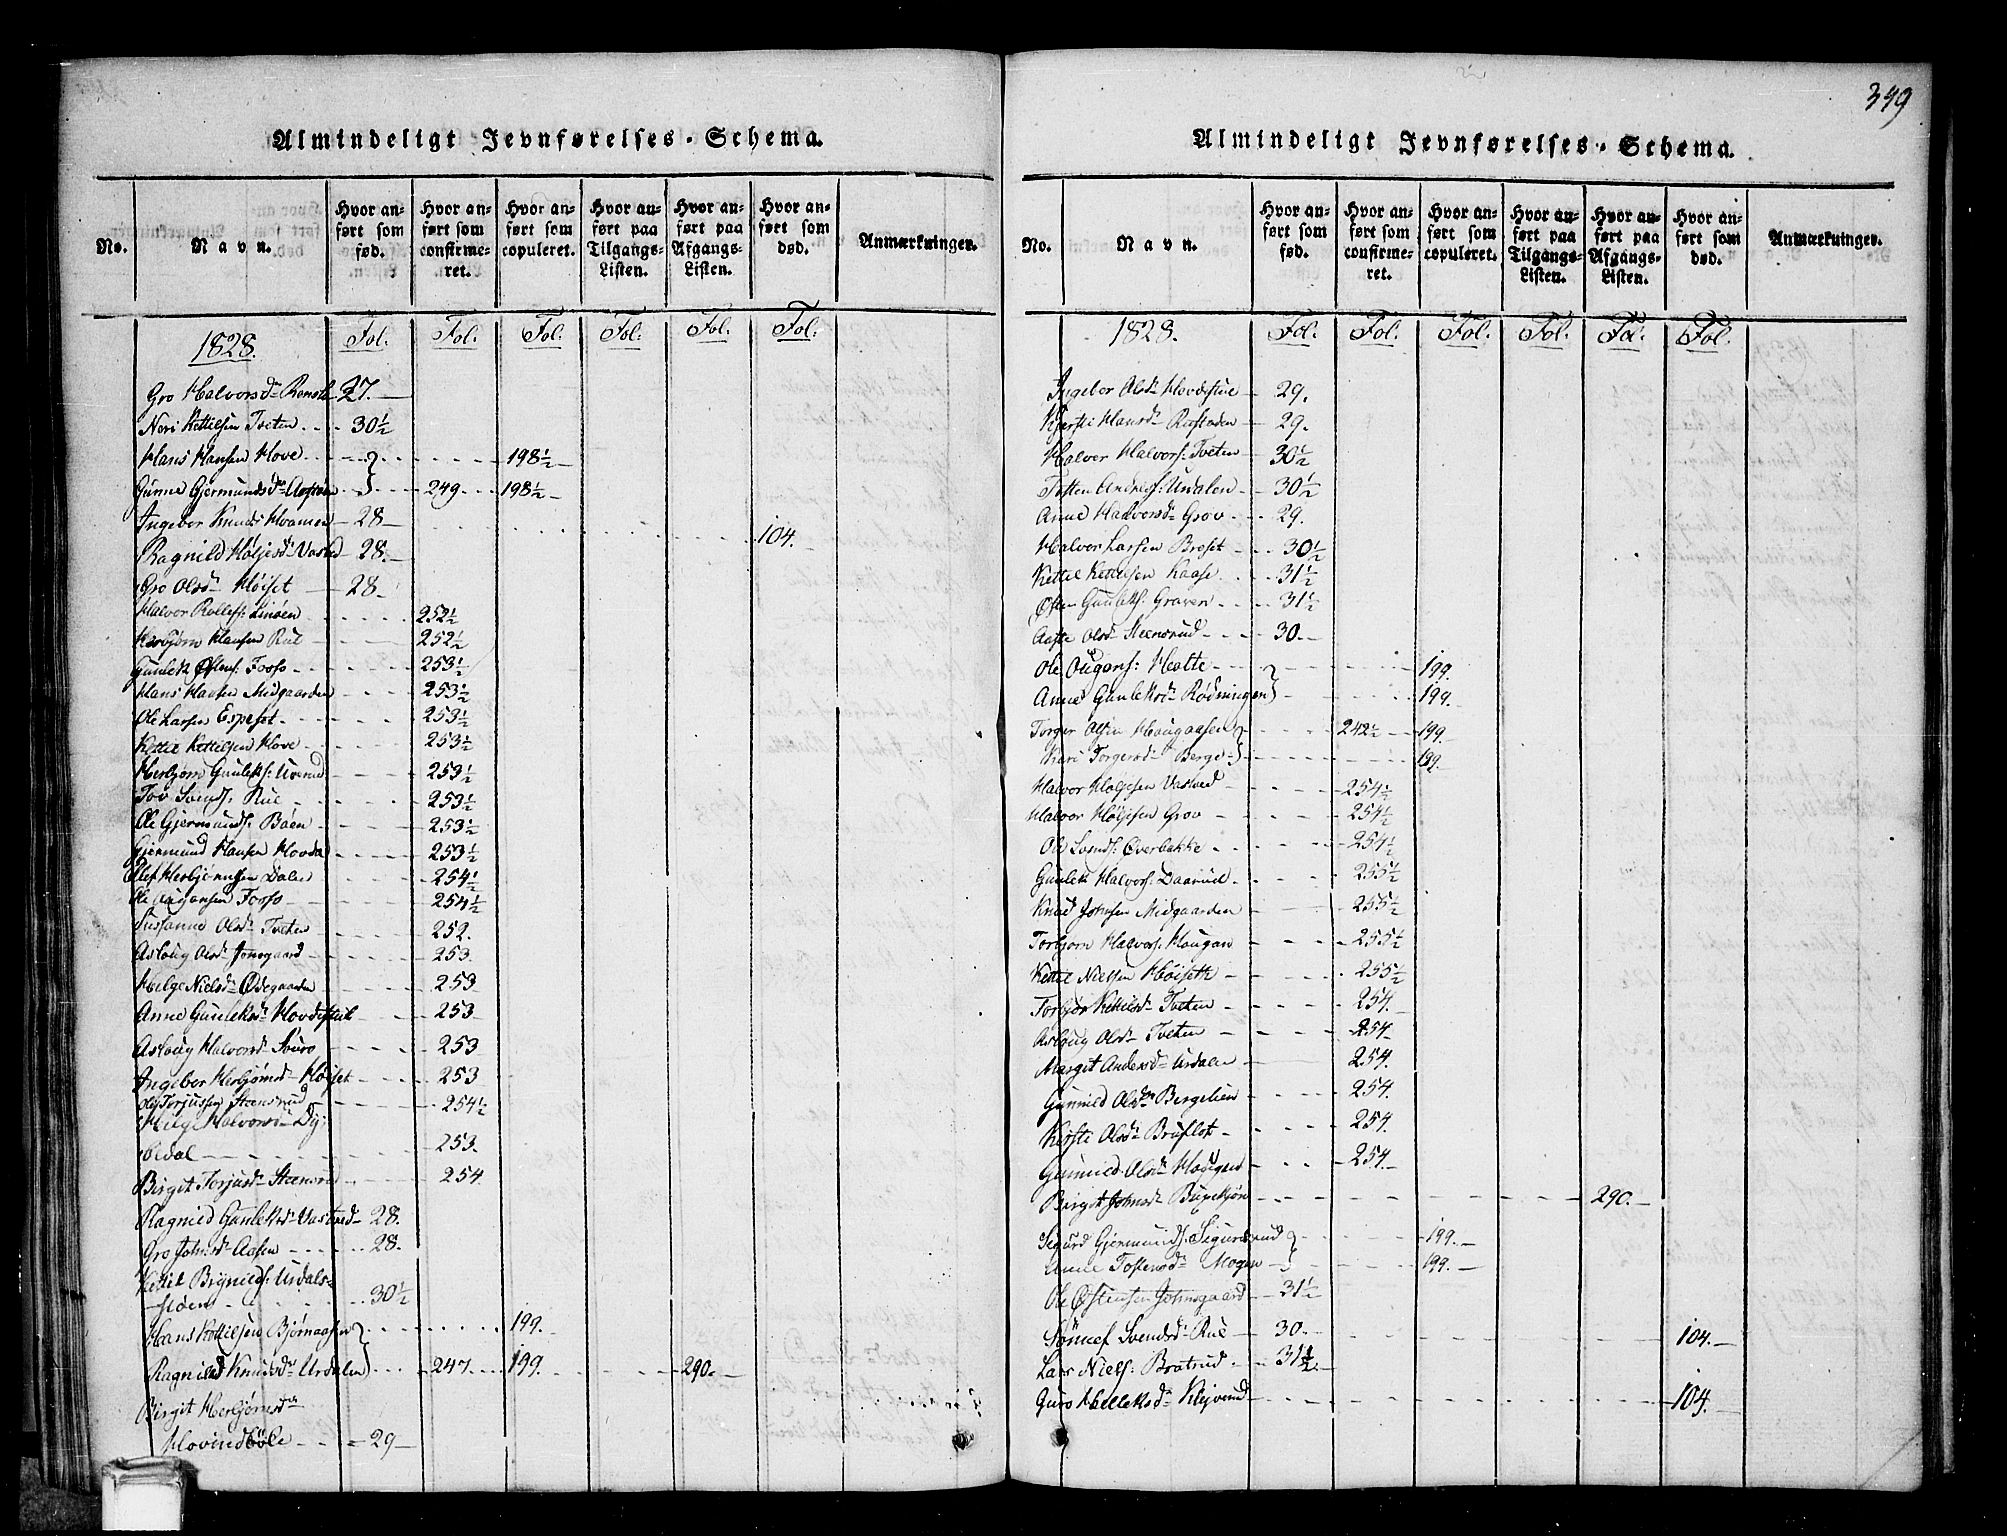 349
Almindeligt Jevnførelses-Schema.
No.
Navn.
Hvor anført som fød.
Hvor anført som confirmeret.
Hvor anført som copuleret.
Hvor anført paa Tilgangs-Listen.
Hvor anført paa Afgangs-Listen.
Hvor anført som død.
Anmærkninger.
1828. Fol. Fol. Fol. Fol. Fol. Fol.
Gro Halvorsdr 27.
Neri Kettilsen Tveten 30½
Hans Hansen Hove 198½
Gunne Gjermundsdr 249 198½
Ingebor Knuds 28
Ragnild Høljesdr Vasted 28. 104.
Gro Olsdr Høiset 28.
Halvor Rollefs: Linøen 252½
Herbjørn Hansen Rue 252½
Gunlek Østens: Fosso 253½
Hans Hansen Midgaarden 253½
Ole Larsen Espeset 253½
Kettil Kettilsen Hove 253½
Herbjørn Gunleks: 253½
Tov Svends: Rue 253½
Ole Gjermunds: Baen 253½
Gjermund Hansen Hovda 253½
Herbjørnsen Dalen 254½
Ole Fosso 254½
Susanne Olsdr Tveten 252.
Aslaug Olsdr Jonsgaard 253
Helge Nielsdr Ødegaarden 253
Anne Gunleksdr Hovdestuel 253
Aslaug Halvorsdr 253
Ingebor Herbjørnsdr Høiset 253
Ole Torjussen Steensrud 254½
Helge Halvorsdr
253.
Birgit Torjusdr Steensrud 254
Ragnild Gunleksdr Vasted 28.
Gro Johnsdr Aasen 28.
Kettil Brynilds: Urdals-
støen 30½
Hans Kettilsen Bjørnaasen 199.
Ragnild Knudsdr Urdalen 247 199. 290.
Birgit Herbjørnsdr
Hovindbøle 29
Almindeligt Jevnførelses-Schema.
No.
Navn.
Hvor anført som fød.
Hvor anført som confirmeret.
Hvor anført som copuleret.
Hvor anført paa Tilgangs-Listen.
Hvor anført paa Afgangs-Listen.
Hvor anført som død.
Anmærkninger.
1828. Fol. Fol. Fol. Fol. Fol. Fol.
Ingebor Olsdr Hovdestuel 29.
Kjersti Hansdr 29.
Halvor Halvors: Tveten 30½
Tosten Andrs: Urdalen 30½
Anne Halvorsdr Grov 29.
Halvor Larsen Breset 30½
Kettil Kettilsen Kaase 31½
Østen Gunleks: Graven 31½
Aaste Olsdr Steensrud 30.
Ole 199.
Anne Gunleksdr Rødningen 199.
Torger Olsen Haugaasen 242½ 199.
Kari Torgersdr Berge 199.
Halvor Holjesen Vasved 254½
Halvor Høljesen Grov 254½
Ole Svends: Overbekke 254½
Gunlek Halvors: Daarud 255½
Knud Johnsen Midgaarden 255½
Torbjørn Halvors: Haugan 255½
Kettil Nielsen Høiseth 255½
Torbjør Kettilsdr Tveten 254.
Aslaug Olsdr Tveten 254.
Margit Andersdr Urdalen 254.
Gunnild Olsdr Bergelien 254.
Kirste Olsdr Bruflot 254.
Gunnild Olsdr Haugen 254.
Birgit Johnsdr 290.
Sigurd Gjermunds: Sigurdsrud 199.
Anne Tostensdr Mogen 199.
Ole Østensen Johnsgaard 31½
Sønnef Svendsdr Rue 30. 104.
Lars Niels: Bratrud 31½
Guro Helleksdr 104.